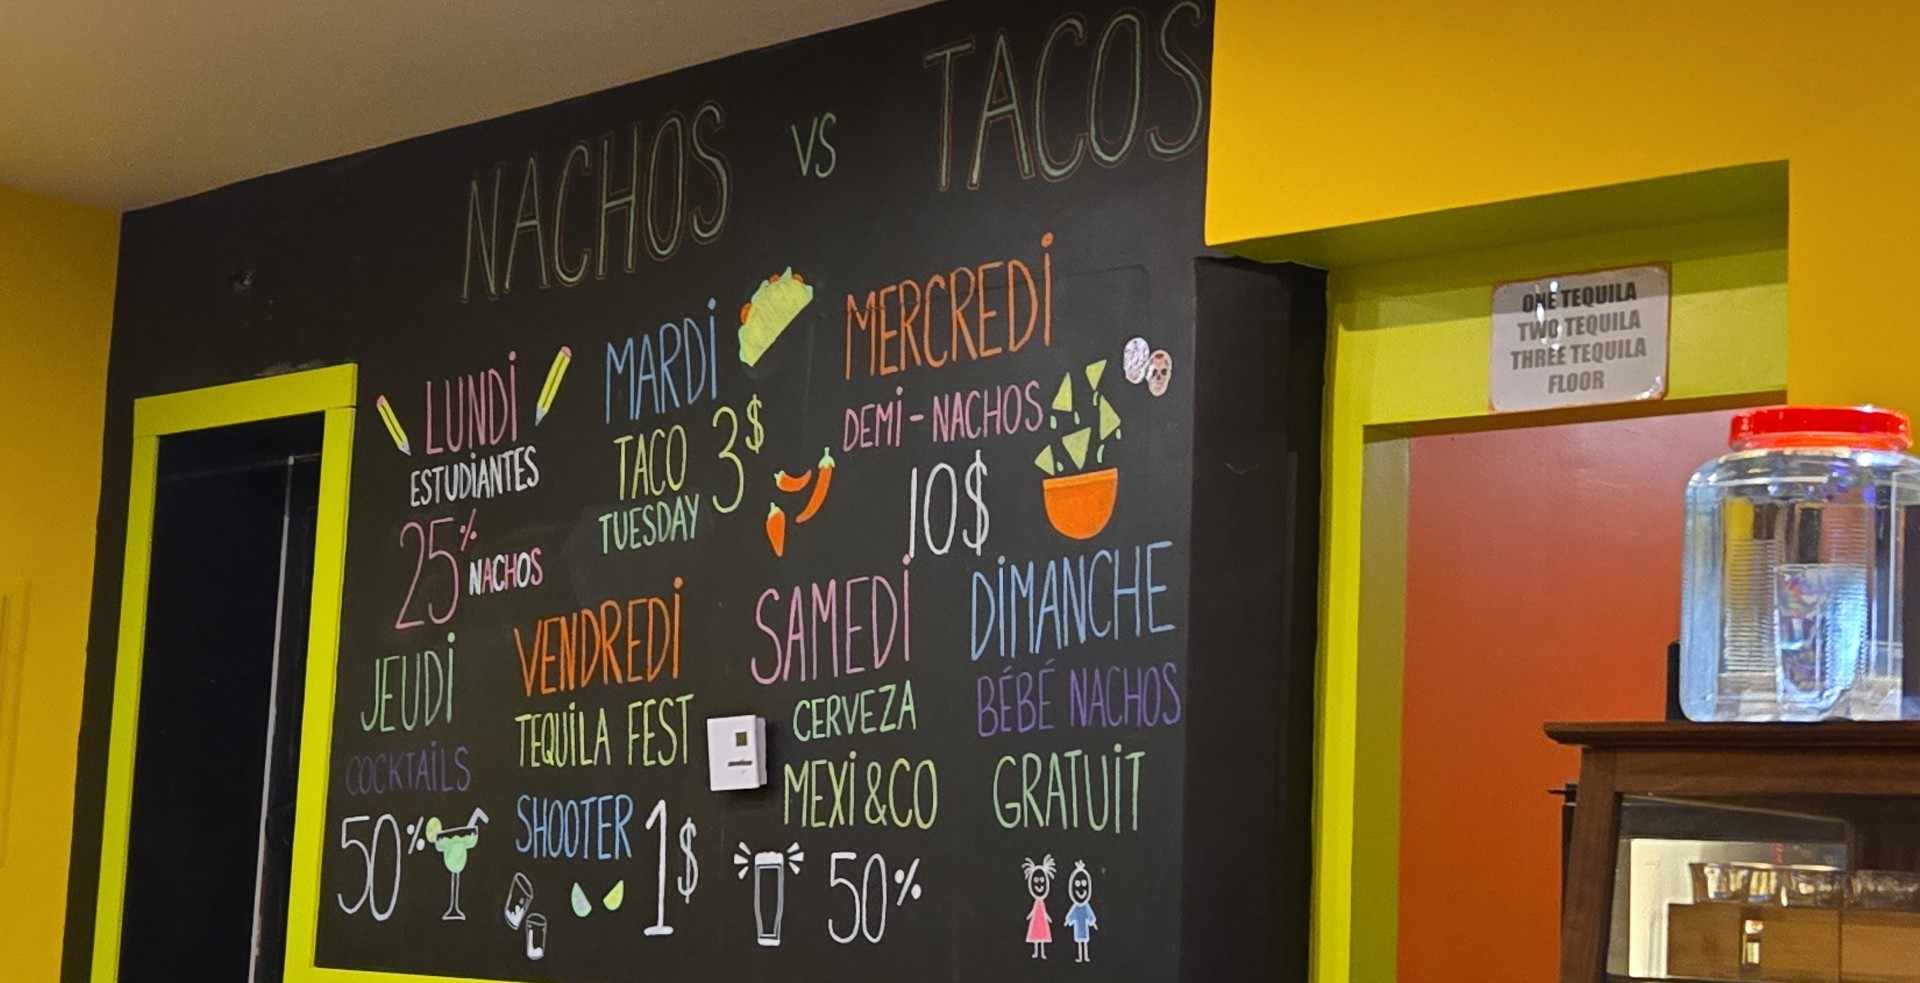 NACHOS VS TACOS
LUNDI
ESTUDIANTES
25%
NACHOS
MARDI
TACO
TUESDAY
3$
MERCREDI
DEMI-NACHOS
10$
JEUDI
COCKTAILS
50%
VENDREDI
TEQUILA FEST
SHOOTER 1$
SAMEDI
CERVEZA
MEXI&CO
50%
DIMANCHE
BÉBÉ NACHOS
GRATUIT
ONE TEQUILA
TWO TEQUILA
THREE TEQUILA
FLOOR